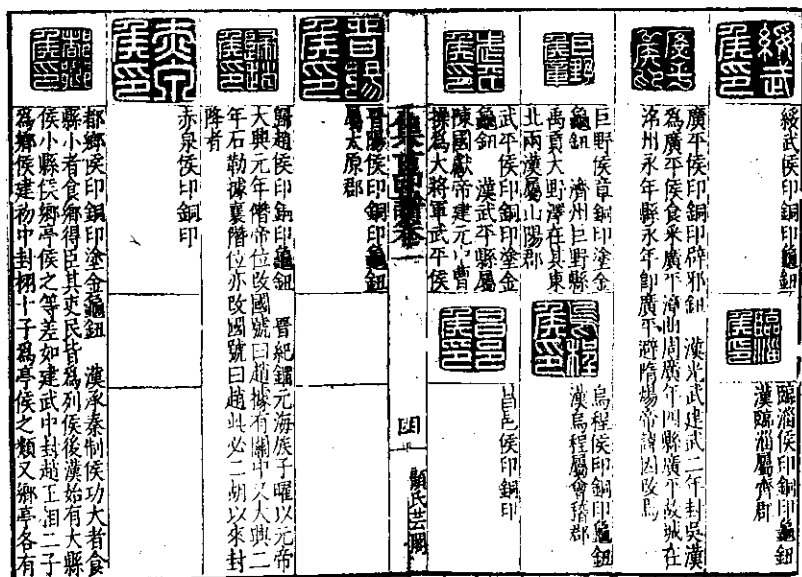 綏武侯印
綏武侯印銅印龜鈕
臨淄侯印
臨淄侯印銅印龜鈕
漢臨淄屬齊郡
廣平侯印
廣平侯印銅印辟邪鈕 漢光武建武二年封吳漢
為廣平侯食采廣平漳曲周廣年四縣廣平故城在
洺州永年縣永年即廣平避隋煬帝諱因改焉
巨野侯章
巨野侯章銅印塗金
龜鈕 濟州巨野縣
禹貢大野澤在其東
北兩漢屬山陽郡
烏程侯印
烏程侯印銅印龜鈕
漢烏程屬會稽郡
武平侯印
武平侯印銅印塗金
龜鈕 漢武平縣屬
陳國獻帝建元中曹
操為大將軍武平侯
昌邑侯印
昌邑侯印銅印
集古印譜卷一
四
顧氏芸閣
晉陽侯印
晉陽侯印銅印龜鈕
屬太原郡
歸趙侯印
歸趙侯印銅印龜鈕 晉紀鐂元海族子曜以元帝
大興元年僭帝位改國號曰趙據有關中又大興二
年石勒據襄階位亦改國號曰趙此必二胡以來封
降者
赤泉侯印
赤泉侯印銅印
都鄉侯印
都鄉侯印銅印塗金龜鈕 漢承秦制侯功大者食
縣小者食鄉得臣其吏民皆為列侯後漢始有大縣
侯小縣侯鄉亭侯之等差如建武中封趙王相二子
為鄉侯建初中封栩十子為亭侯之類又鄉亭各有